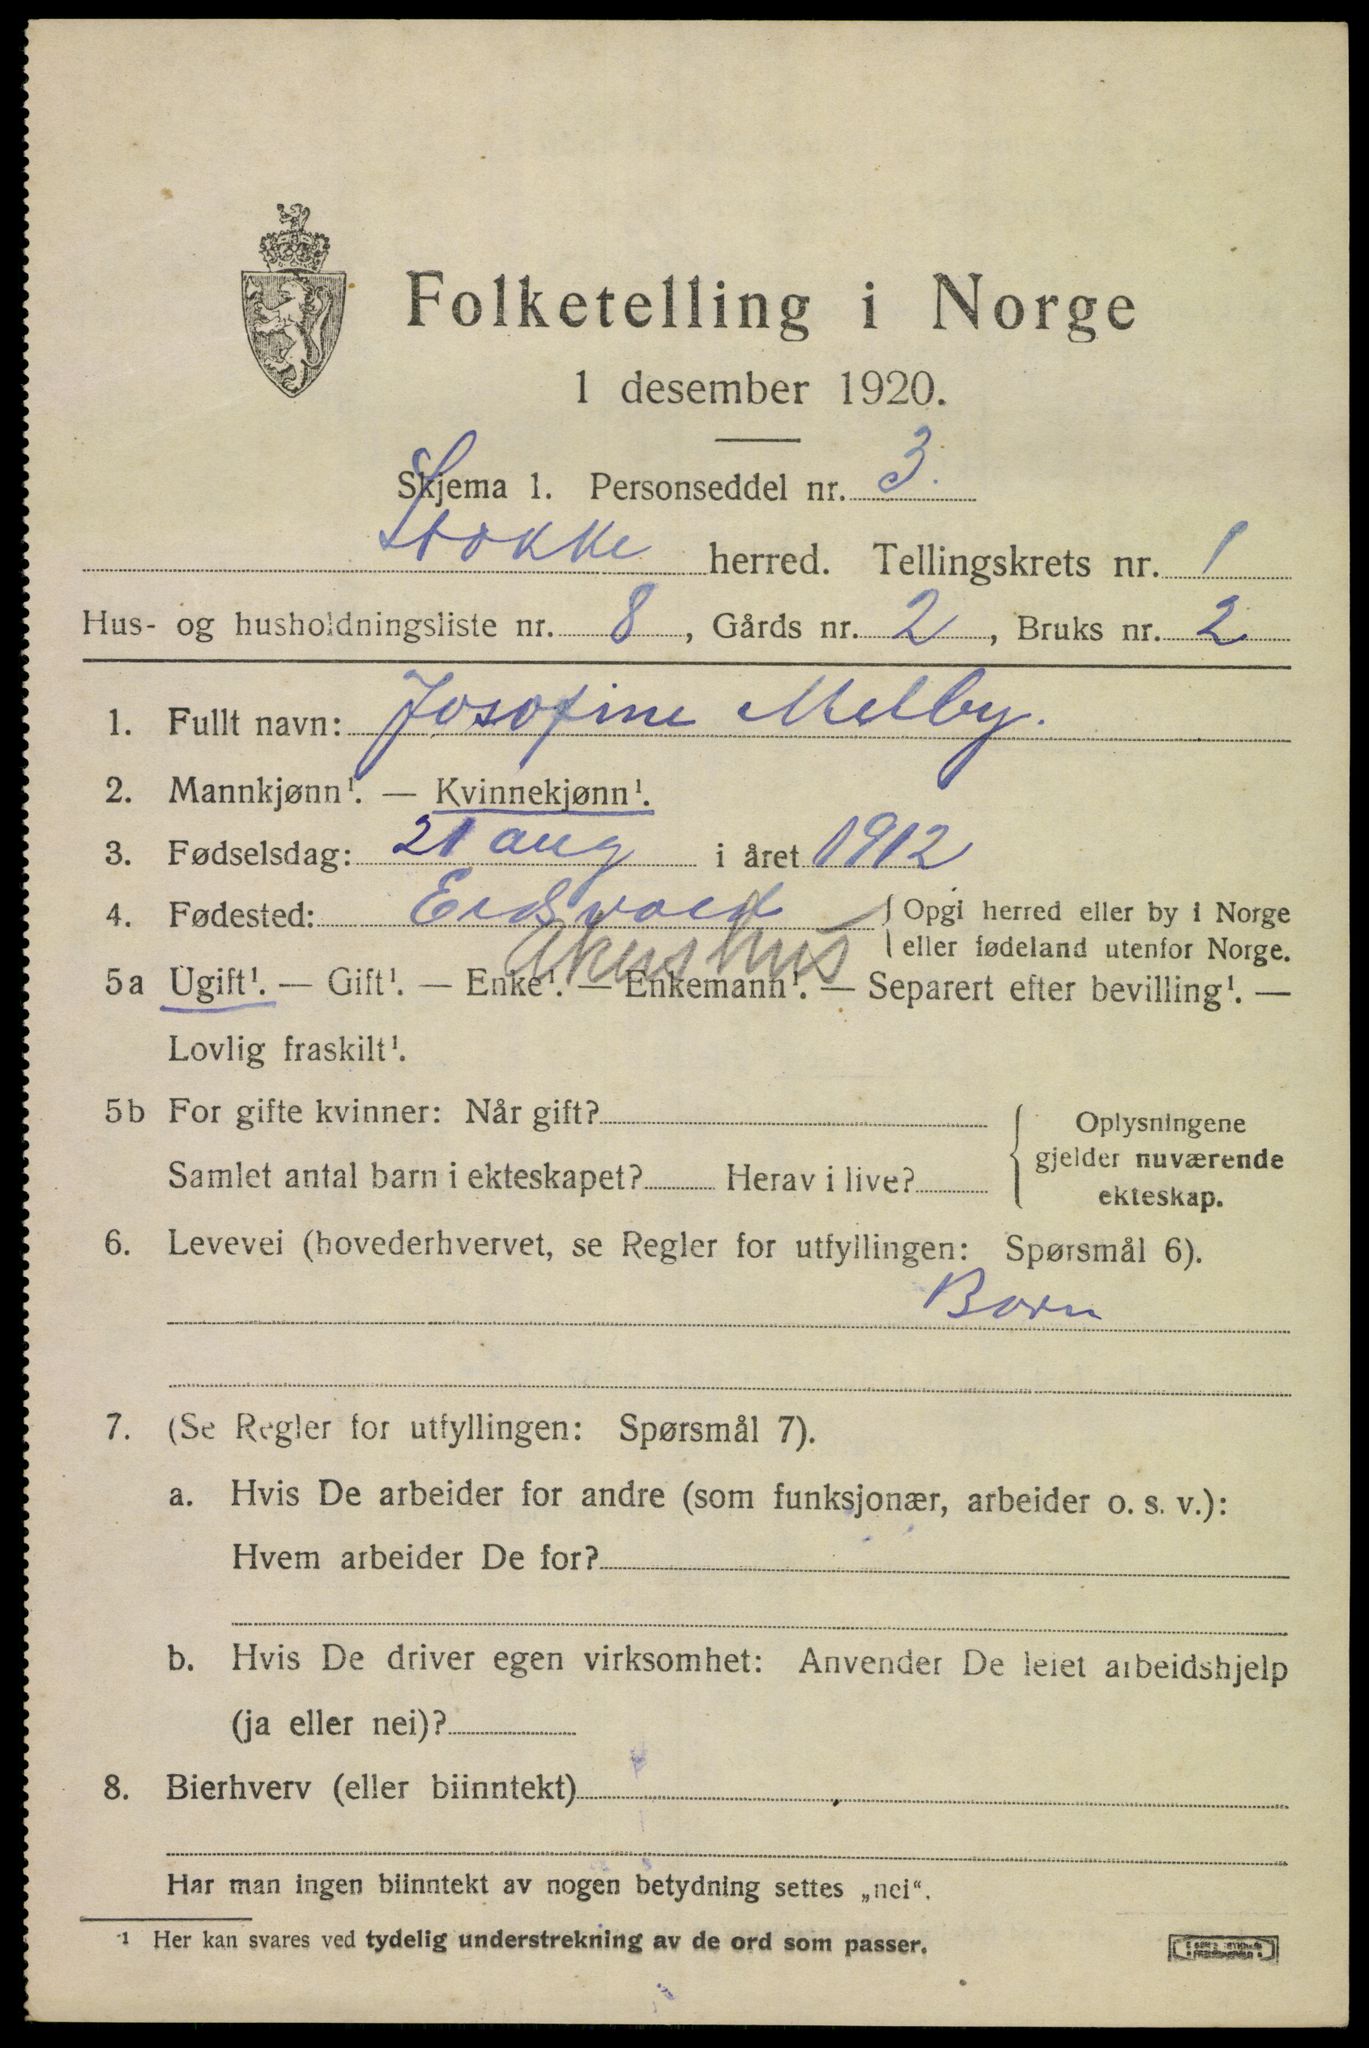 Folketelling i Norge
1 desember 1920.
Skjema 1. Personseddel nr. 3.
Stokke herred. Tellingskrets nr. 1
Hus- og husholdningsliste nr. 8, Gårds nr. 2, Bruks nr. 2
1. Fullt navn: Josofine Melby.
2. Mannkjønn¹. — Kvinnekjønn¹.
3. Fødselsdag: 21 aug i året 1912
4. Fødested: Eidsvold { Opgi herred eller by i Norge
eller fødeland utenfor Norge.
Akershus
5a Ugift¹. — Gift¹. — Enke¹. — Enkemann¹. — Separert efter bevilling¹. —
Lovlig fraskilt¹.
5b For gifte kvinner: Når gift?
Samlet antal barn i ekteskapet? Herav i live?
{ Oplysningene
gjelder nuværende
ekteskap.
6. Levevei (hovederhvervet, se Regler for utfyllingen: Spørsmål 6).
Barn
7. (Se Regler for utfyllingen: Spørsmål 7).
a. Hvis De arbeider for andre (som funksjonær, arbeider o. s. v.):
Hvem arbeider De for?
b. Hvis De driver egen virksomhet: Anvender De leiet arbeidshjelp
(ja eller nei)?
8. Bierhverv (eller biinntekt)
Har man ingen biinntekt av nogen betydning settes „nei“.
¹ Her kan svares ved tydelig understrekning av de ord som passer.